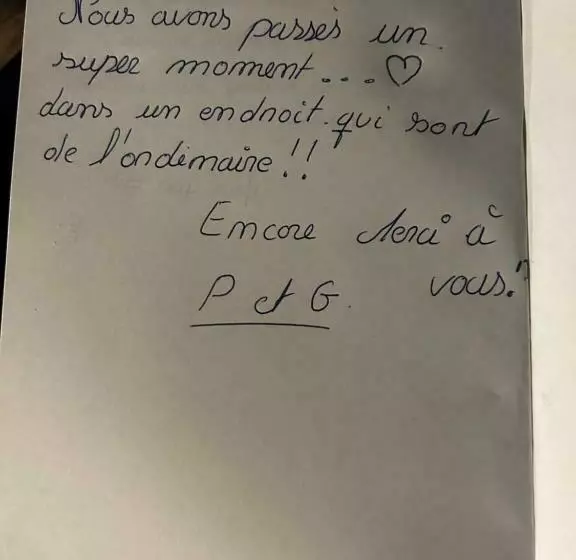 Nous avons passés un
super moment...♡
dans un endroit qui sont
de l'ordimaire!!
Encore Merci à
vous!!
P et G.